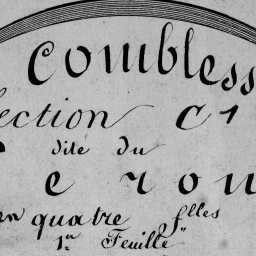 Combless
ection C 1
dite du
e rou
en quatre flles
1re Feuille